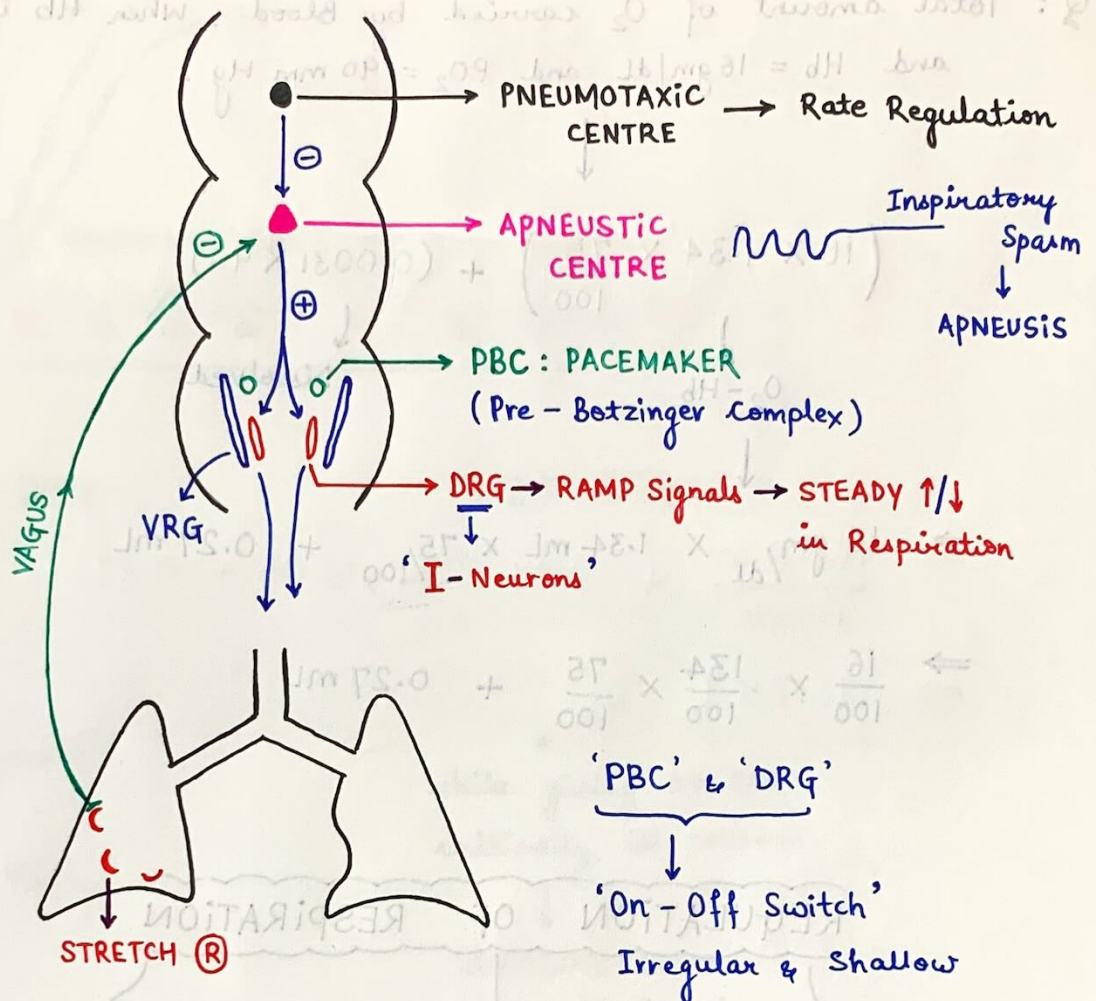 PNEUMOTAXIC CENTRE → Rate Regulation
⊖
⊖
APNEUSTIC CENTRE
Inspiratory Spasm
↓
APNEUSIS
⊕
PBC : PACEMAKER
(Pre - Botzinger Complex)
DRG → RAMP Signals → STEADY ↑/↓
in Respiration
↓
'I-Neurons'
VRG
VAGUS
'PBC' & 'DRG'
↓
'On - Off Switch'
Irregular & Shallow
STRETCH Ⓡ